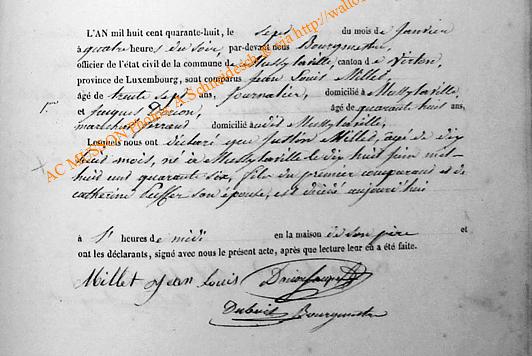 L'AN mil huit cent quarante-huit, le sept du mois de Janvier
à quatre heures du soir, par-devant nous Bourgmestre,
officier de l'état civil de la commune de Mussylaville, canton de Virton,
province de Luxembourg, sont comparus Jean Louis Millet,
âgé de trente sept ans, journalier, domicilié à Mussylaville,
et Jacques Dorion, âgé de quarante huit ans,
maréchal ferrand domicilié audit Mussylaville,
Lesquels nous ont déclaré que Justin Millet, agé de dix
huit mois, né à Mussylaville le dix huit Juin mil
huit cent quarante six, fils du premier comparant et de
catherine son épouse, est décédé aujourd'hui
à heures de midi en la maison de son père et
ont les déclarants, signé avec nous le présent acte, après que lecture leur en a été faite.
Millet Jean Louis
Bourgmestre
AC MUSSON Photo: A Schneideschek via http://wallo